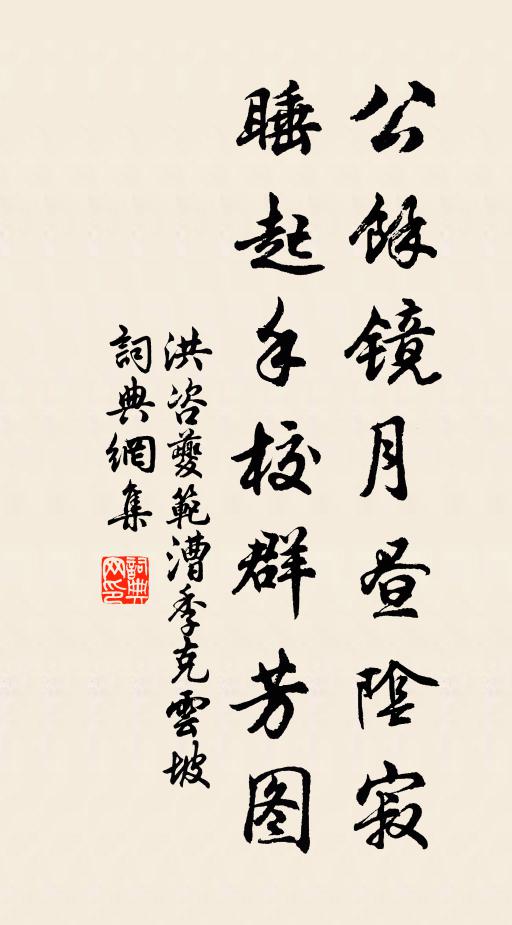 公餘鏡月昼陰寂
睡起手校群芳图
洪咨夔範漕季克雲坡
詞典網集
詞典网印